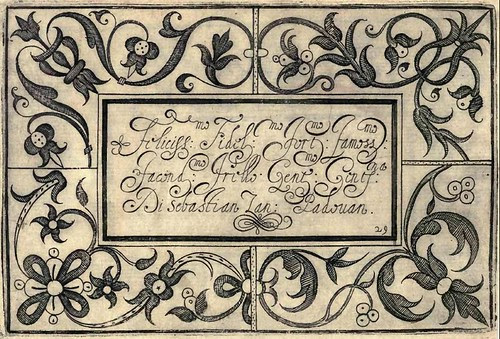 Feliciss: mo Fidel: mo Fort: mo Famoss: mo
Facond: Grillo Gent: mo Gentil: 
Di Sebastian Zan: Padouan.
29